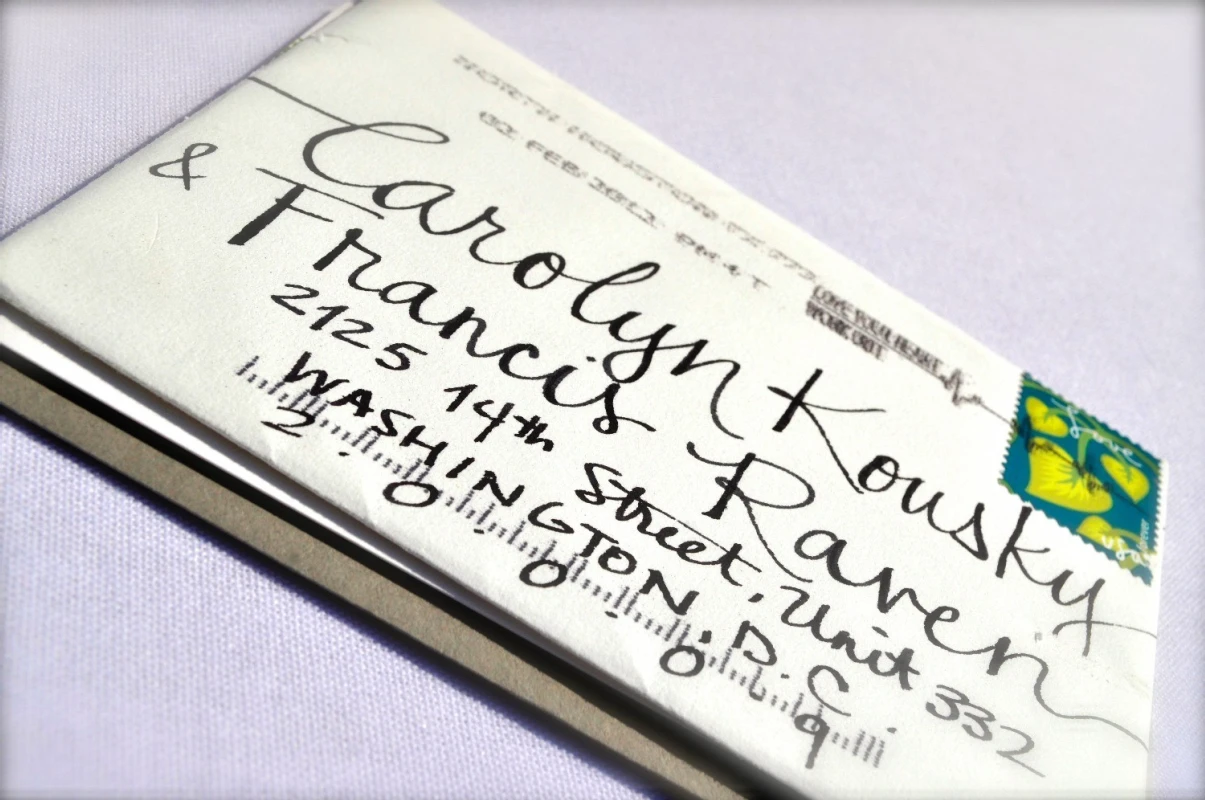 NORTH HOUSTON TX 773
02 FEB 2012 PM 4 T
LOVE YOUR HEART
Love
forever
USA
Carolyn Kousky
& Francis Raven
2125 14th Street, Unit 332
WASHINGTON, D.C.
2 . 0 . 0 . 0 . 9